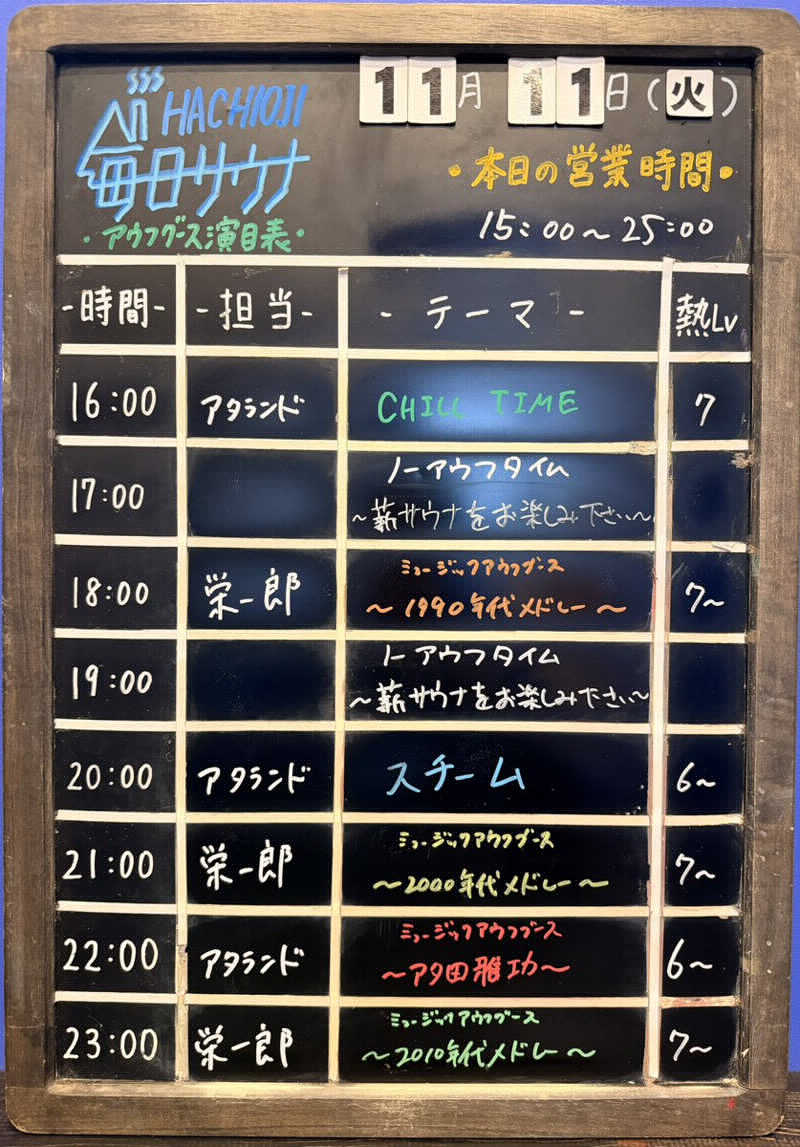 HACHIOJI
毎日サウナ
・アウフグース演目表・
11月 11日(火)
・本日の営業時間・
15:00〜25:00
-時間- -担当- -テーマ- 熱Lv
16:00 アタランド CHILL TIME 7
17:00 ノーアウフタイム
〜薪サウナをお楽しみ下さい〜
18:00 栄一郎 ミュージックアウフグース
〜1990年代メドレー〜 7〜
19:00 ノーアウフタイム
〜薪サウナをお楽しみ下さい〜
20:00 アタランド スチーム 6〜
21:00 栄一郎 ミュージックアウフグース
〜2000年代メドレー〜 7〜
22:00 アタランド ミュージックアウフグース
〜アタ田雅功〜 6〜
23:00 栄一郎 ミュージックアウフグース
〜2010年代メドレー〜 7〜